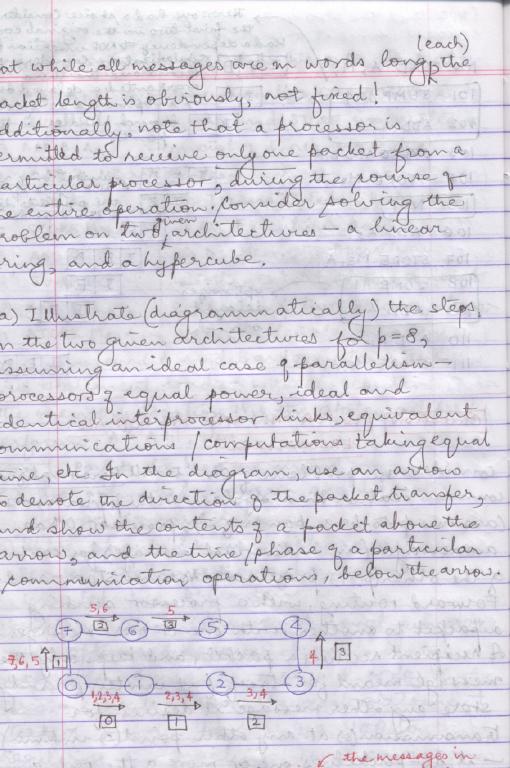 (each)
at while all messages are m words long, the
acket length is obviously, not fixed!
dditionally, note that a processor is
ermitted to receive only one packet from a
articular processor, during the course of
he entire operation. Consider solving the
given
roblem on two architectures — a linear
ring, and a hypercube.
a) Illustrate (diagrammatically) the steps,
n the two given architectures for p=8,
ssuming an ideal case of parallelism—
processors of equal power, ideal and
dentical interprocessor links, equivalent
ommunications / computations taking equal
time, etc. In the diagram, use an arrow
to denote the direction of the packet transfer,
nd show the contents of a packet above the
arrow, and the time/phase of a particular
communication operations, below the arrow.
5,6 5
2 3
7 6 5 4
7,6,5 1 4 3
0 1 2 3
1,2,3,4 2,3,4 3,4
0 1 2
the messages in